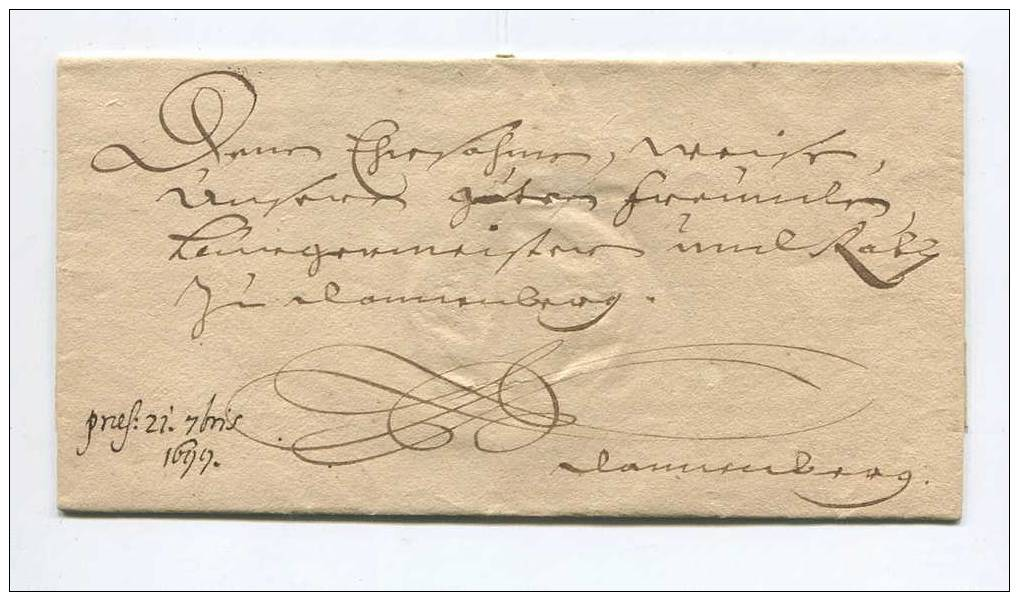 Denen Ehrsahmen, weisen,
Unsern guten freunden,
burgermeistern und Rath
Zu dannenberg.
præs: 21. 7bris
1699.
dannenberg.